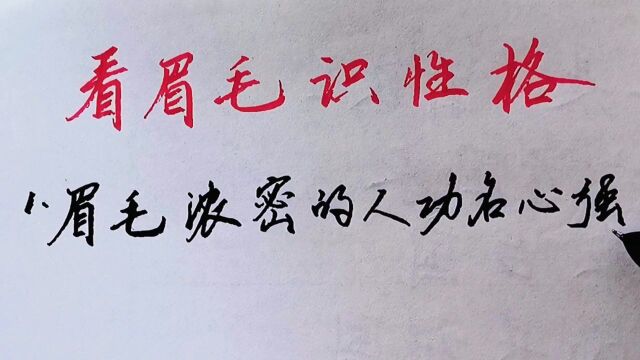 看眉毛识性格
1.眉毛浓密的人功名心强